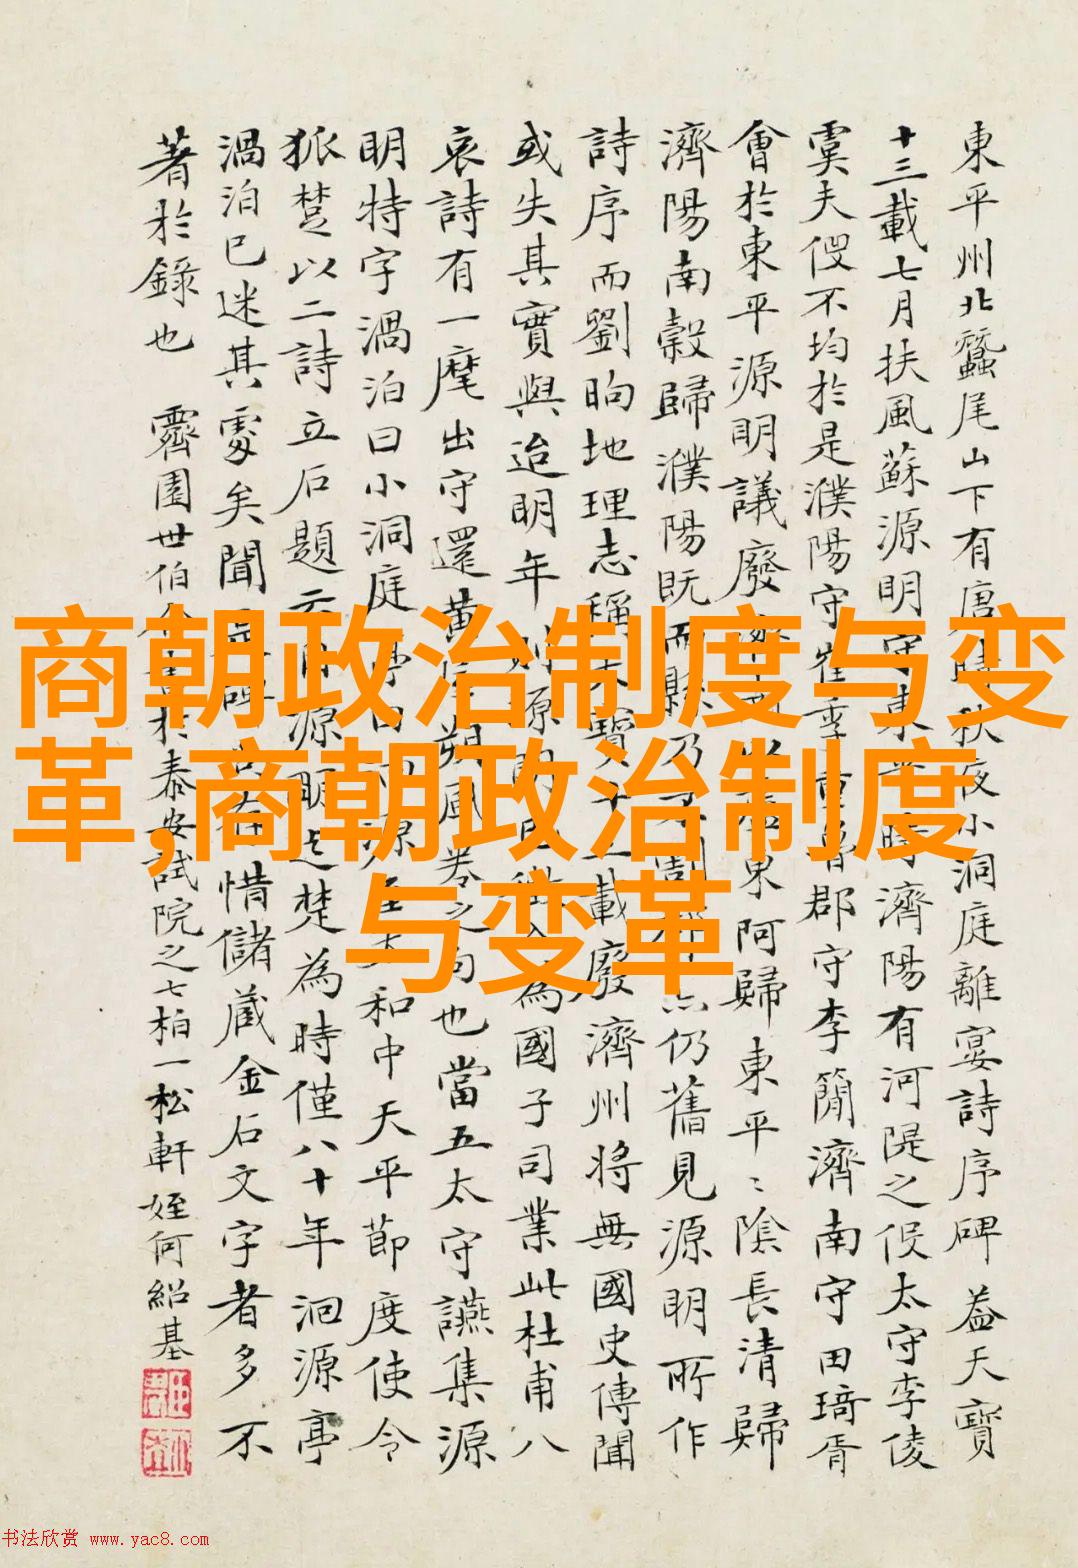 東平州北蠶尾山下有唐時秋夜小洞庭離宴詩序碑 葢天寶
十三載七月扶風蘇源明守東 時濟陽有河隄之役太守李倰
虞夫役不均於是濮陽守崔季重魯郡守李簡濟南守田琦胥
會於東平源明議廢 東阿歸東平〻陰長清歸
濟陽南穀歸濮陽既而縣乃 仍舊見源明所作
詩序而劉昫地理志稱天寶十三載廢濟州將無國史傳聞
或失其實與迨明年 源明 為國子司業此杜甫八
哀詩有一麾出守還黄 朔風卷之句也當五太守讌集源
明特字渦泊曰小洞庭 和中天平節度使令
狐楚以二詩立石題云 源明 楚為時僅八十年洄源亭
渦泊已迷其處矣聞 惜儲蔵金石文字者多不
著於錄也 霽園世伯 於泰安試院之七柏一松軒 姪何紹基
商朝政治制度与变
革,商朝政治制度
与变革
书法欣赏 www.yac8.com